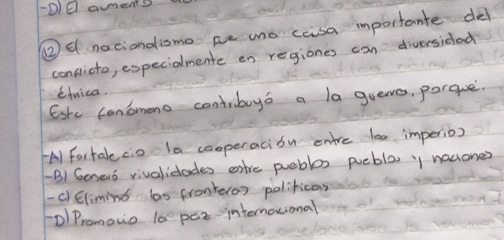 -D) El aumento
12) El nacionalismo fue una causa importante del
conflicto, especialmente en regiones con diversidad
étnica.
Este fenómeno contribuyó a la guerra, porque.
-A) Fortalecio la cooperación entre los imperios
-B) Generó rivalidades entre pueblos pueblos y naciones
-C) Eliminó las fronteras politicas
-D) Promovio la paz internacional